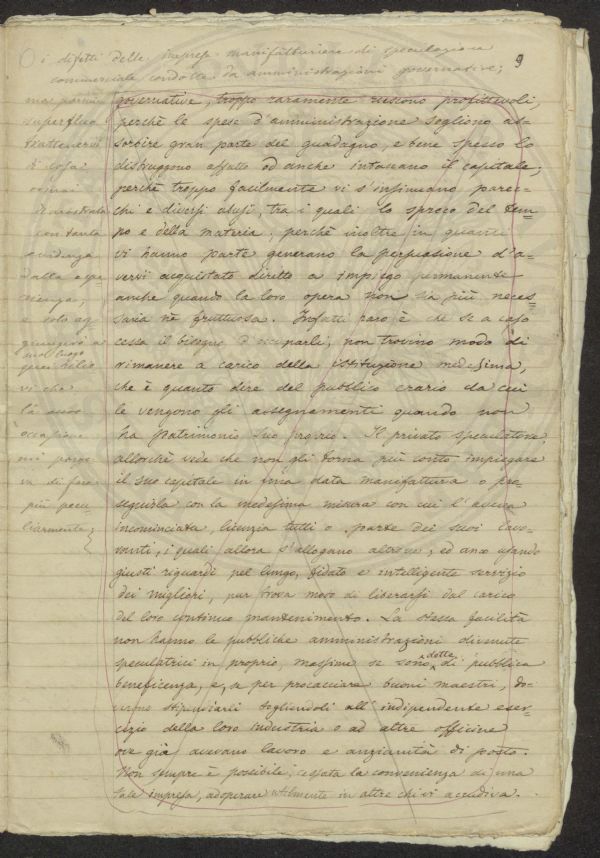 i difetti delle imprese manifatturiere di speculazione
commerciale condotte da amministrazioni governative;
9
mi
superfluo
trattenervi
di cosa
ormai
dimostrata
con tanta
evidenza
dalla espe-
rienza;
e solo ag-
giungerò a
suo luogo
quei
vi che
la
occasione
mi porge-
rà di far
più pecu-
liarmente;
governative, troppo raramente riescono profittevoli,
perchè le spese d'amministrazione sogliono as-
sorbire gran parte del guadagno, e bene spesso lo
distruggono affatto od anche intaccano il capitale;
perchè troppo facilmente vi s'insinuano parec-
chi e diversi abusi, tra i quali lo spreco del tem-
po e della materia; perchè inoltre in quanti
vi hanno parte generano la persuasione d'a-
versi acquistato diretto a impiego permanente
anche quando la loro opera non sia più neces-
saria nè fruttuosa. Infatti raro è che se a caso
cessa il bisogno d'occuparli, non trovino modo di
rimanere a carico della istituzione medesima,
che è quanto dire del pubblico erario da cui
le vengono gli assegnamenti quando non
ha patrimonio suo proprio. Il privato speculatore
allorchè vede che non gli torna più conto impiegare
il suo capitale in una data manifattura o pro-
seguirla con la medesima misura con cui l'aveva
incominciata, licenzia tutti o parte dei suoi lavo-
ranti, i quali allora s'allogano altrove; ed anco usando
giusti riguardi pel lungo, fidato e intelligente servizio
dei migliori, pur trova modo di liberarsi dal carico
del loro continuo mantenimento. La stessa facilità
non hanno le pubbliche amministrazioni divenute
speculatrici in proprio, massime se sono dette di pubblica
beneficenza, e, se per procacciare buoni maestri, do-
verono stipendiarli togliendoli all'indipendente eser-
cizio della loro industria o ad altre officine
ove già avevano lavoro e anzianità di posto.
Non sempre è possibile, cessata la convenienza di una
tale impresa, adoperare utilmente in altre chi vi accudiva.